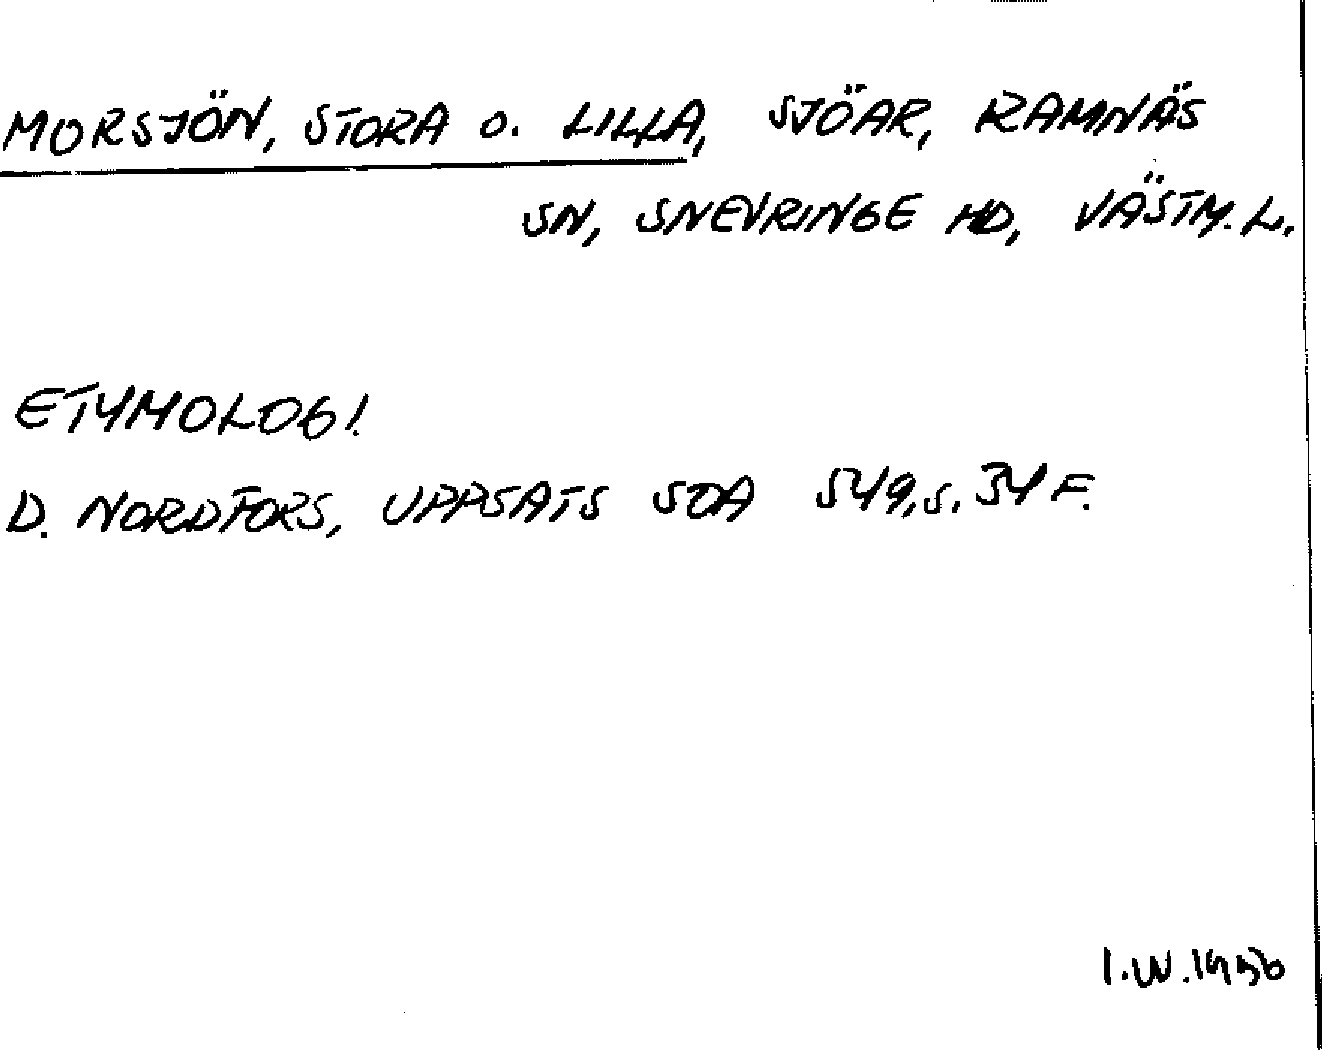 MORSJÖN, STORA O. LILLA, SJÖAR, RAMNÄS
SN, SNEVRINGE HD, VÄSTM. L.
ETYMOLOGI
D. NORDFORS, UPPSATS SOA 549, S. 34 F.
I.W. 1956